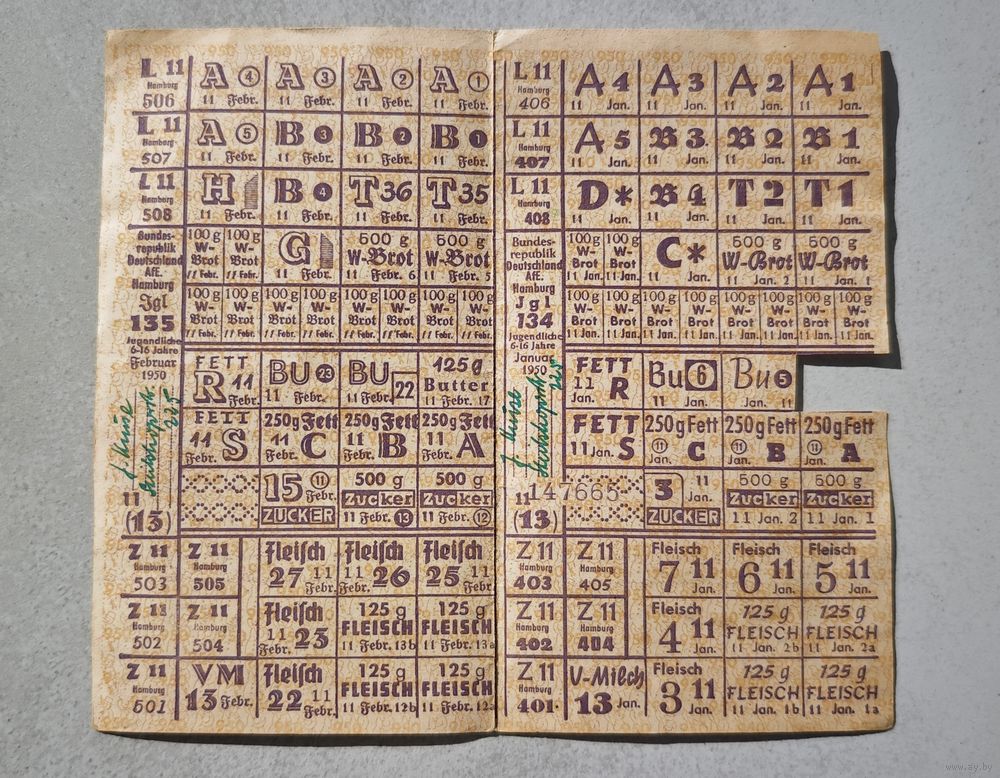 L 11 Hamburg 506
A 4 11 Febr.
A 3 11 Febr.
A 2 11 Febr.
A 1 11 Febr.
L 11 Hamburg 507
A 5 11 Febr.
B 3 11 Febr.
B 2 11 Febr.
B 1 11 Febr.
L 11 Hamburg 508
H 11 Febr.
B 4 11 Febr.
T 36 11 Febr.
T 35 11 Febr.
Bundes-
republik
Deutschland
AfE.
Hamburg
Jgl
135
Jugendliche
6-16 Jahre
Februar
1950
11
(13)
100 g W-Brot 11 Febr.
100 g W-Brot 11 Febr.
G 11 Febr.
500 g W-Brot 11 Febr. 6
500 g W-Brot 11 Febr. 5
100 g W-Brot 11 Febr.
100 g W-Brot 11 Febr.
100 g W-Brot 11 Febr.
100 g W-Brot 11 Febr.
100 g W-Brot 11 Febr.
100 g W-Brot 11 Febr.
100 g W-Brot 11 Febr.
100 g W-Brot 11 Febr.
FETT R 11 Febr.
BU 23 11 Febr.
BU 22 11 Febr.
125 g Butter 11 Febr. 17
FETT 11 S Febr.
250 g Fett 11 C Febr.
250 g Fett 11 B Febr.
250 g Fett 11 A Febr.
15 11 Febr. ZUCKER
500 g Zucker 11 Febr. 13
500 g Zucker 11 Febr. 12
Z 11 Hamburg 503
Z 11 Hamburg 505
Fleisch 27 11 Febr.
Fleisch 11 26 Febr.
Fleisch 25 11 Febr.
Z 11 Hamburg 502
Z 11 Hamburg 504
Fleisch 11 23 Febr.
125 g FLEISCH 11 Febr. 13b
125 g FLEISCH 11 Febr. 13a
Z 11 Hamburg 501
VM 13 Febr.
Fleisch 22 11 Febr.
125 g FLEISCH 11 Febr. 12b
125 g FLEISCH 11 Febr. 12a
L 11 Hamburg 406
A 4 11 Jan.
A 3 11 Jan.
A 2 11 Jan.
A 1 11 Jan.
L 11 Hamburg 407
A 5 11 Jan.
B 3 11 Jan.
B 2 11 Jan.
B 1 11 Jan.
L 11 Hamburg 408
D* 11 Jan.
B 4 11 Jan.
T 2 11 Jan.
T 1 11 Jan.
Bundes-
republik
Deutschland
AfE.
Hamburg
Jgl
134
Jugendliche
6-16 Jahre
Januar
1950
11
(13)
100 g W-Brot 11 Jan.
100 g W-Brot 11 Jan.
C* 11 Jan.
500 g W-Brot 11 Jan. 2
500 g W-Brot 11 Jan. 1
100 g W-Brot 11 Jan.
100 g W-Brot 11 Jan.
100 g W-Brot 11 Jan.
100 g W-Brot 11 Jan.
100 g W-Brot 11 Jan.
100 g W-Brot 11 Jan.
100 g W-Brot 11 Jan.
100 g W-Brot 11 Jan.
FETT 11 R Jan.
Bu 6 11 Jan.
Bu 5 Jan. 11
FETT 11 Jan. S
250 g Fett 11 C Jan.
250 g Fett 11 B Jan.
250 g Fett 11 A Jan.
147665
3 11 Jan. ZUCKER
500 g Zucker 11 Jan. 2
500 g Zucker 11 Jan. 1
Z 11 Hamburg 403
Z 11 Hamburg 405
Fleisch 7 11 Jan.
Fleisch 6 11 Jan.
Fleisch 5 11 Jan.
Z 11 Hamburg 402
Z 11 Hamburg 404
Fleisch 4 11 Jan.
125 g FLEISCH 11 Jan. 2b
125 g FLEISCH 11 Jan. 2a
Z 11 Hamburg 401
V-Milch 13 Jan.
Fleisch 3 11 Jan.
125 g FLEISCH 11 Jan. 1b
125 g FLEISCH 11 Jan. 1a
www.ay.by